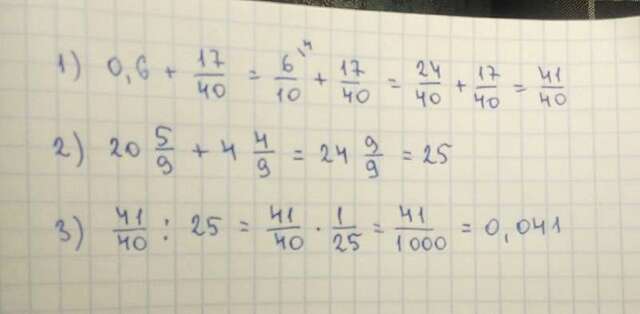 1) 0,6 + 17/40 = 6/10 \4 + 17/40 = 24/40 + 17/40 = 41/40
2) 20 5/9 + 4 4/9 = 24 9/9 = 25
3) 41/40 : 25 = 41/40 · 1/25 = 41/1000 = 0,041